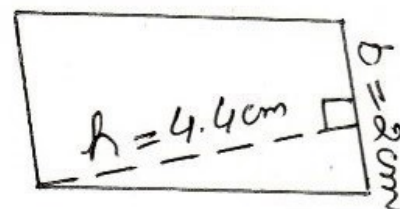 h = 4.4cm
b = 2cm